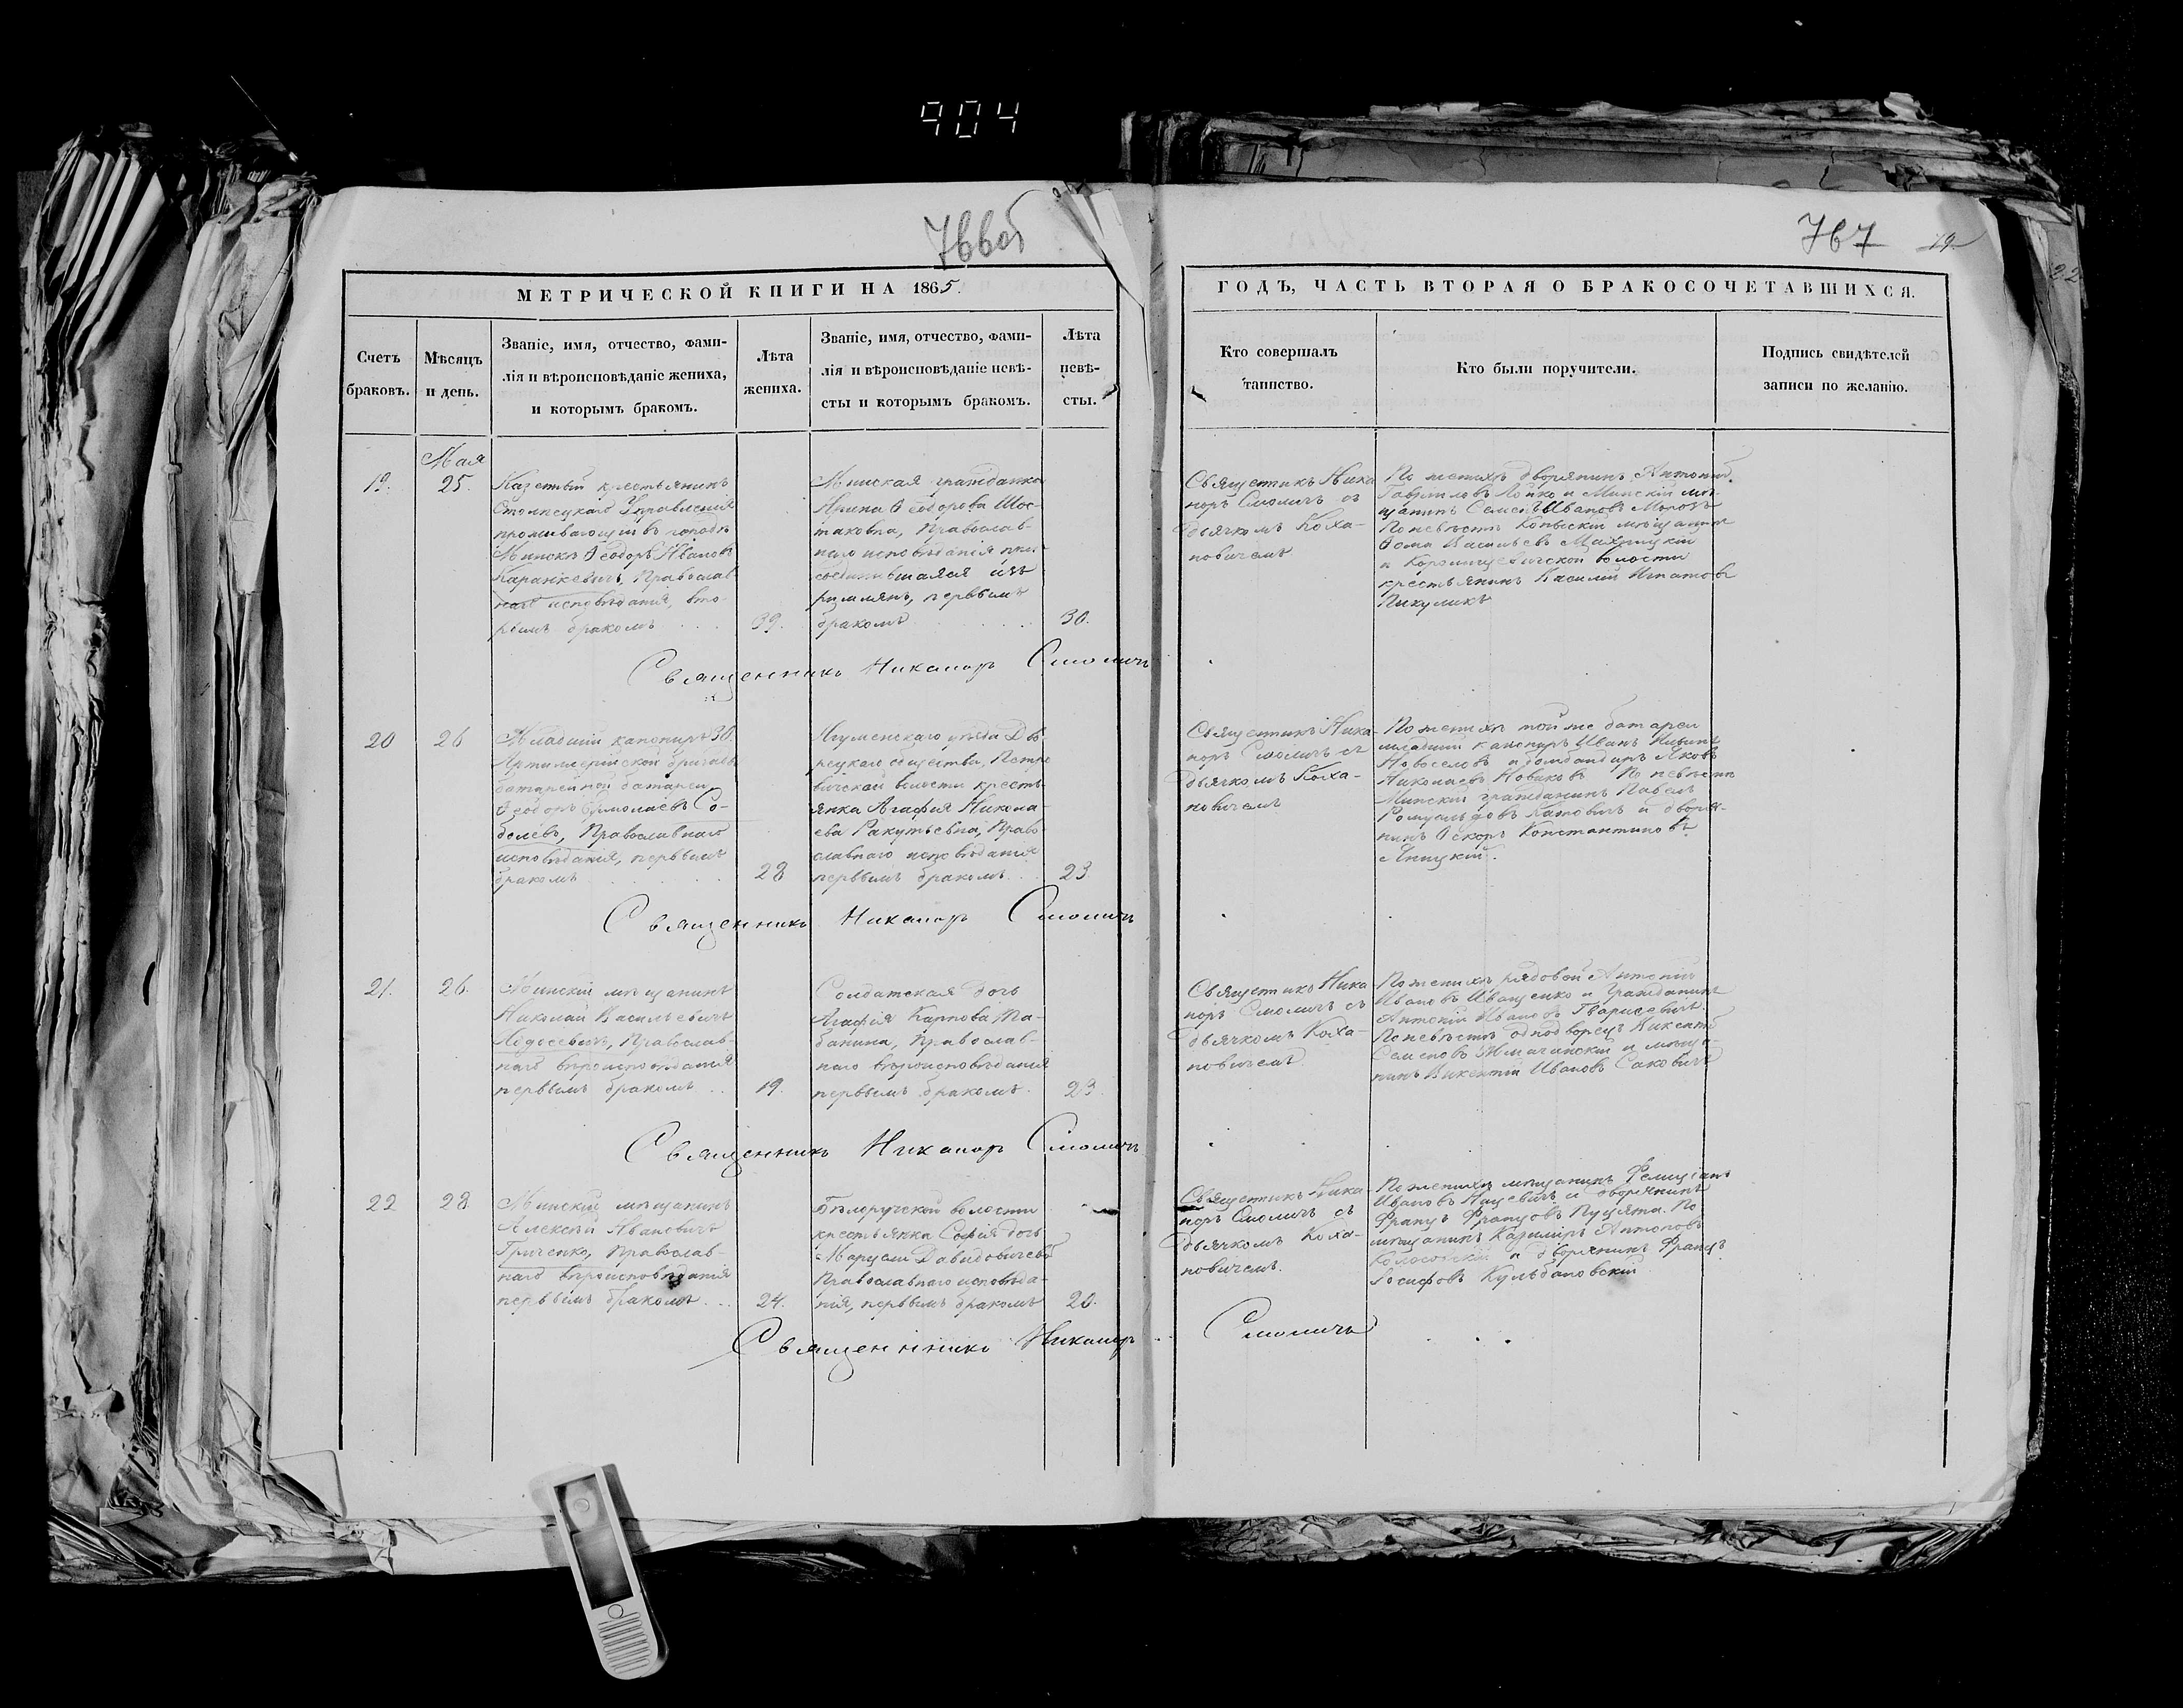 904
766об
767
79
22
МЕТРИЧЕСКОЙ КНИГИ НА 1865.
Счетъ браковъ.
Мѣсяцъ и день.
Званіе, имя, отчество, фами-
лія и вѣроисповѣданіе жениха,
и которымъ бракомъ.
Лѣта жениха.
Званіе, имя, отчество, фами-
лія и вѣроисповѣданіе невѣ-
сты и которымъ бракомъ.
Лѣта невѣ-
сты.
ГОДЪ, ЧАСТЬ ВТОРАЯ О БРАКОСОЧЕТАВШИХСЯ.
Кто совершалъ
таинство.
Кто были поручители.
Подпись свидѣтелей
записи по желанію.
Мая
19.
25.
Казенный крестьянинъ
Столпецкаго Управленія
проживающій въ городѣ
Минскѣ Ѳеодоръ Ивановъ
Каранкевичъ, Православ-
наго исповѣданія, вто-
рымъ бракомъ
39.
Минская гражданка
Ѳеодорова Шос-
таковна, Православ-
наго исповѣданія при-
соединившаяся изъ
римлянъ, первымъ
бракомъ
30.
Священникъ Ника-
норъ Смоличъ съ
дьячкомъ Коха-
новичемъ
По женихѣ дворянинъ Антоній
Гавриловъ Лойко и Минскій мѣ-
щанинъ Семенъ Ивановъ Морозъ
По невѣстѣ Копысскій мѣщанинъ
Ѳома Васильевъ
и волости
крестьянинъ Василій Игнатовъ
Пикуликъ
Священникъ Никаноръ Смоличъ
20
26
Младшій канониръ 30.
Артиллерійской бригады
батарейной батареи
Ѳеодоръ Ермолаевъ Со-
болевъ, Православнаго
исповѣданія, первымъ
бракомъ
28
Игуменскаго уѣзда Дв
рецкаго общества, Петре-
вичской волости кресть-
янка Агафія Никола-
ева Ракутьевна, Право-
славнаго исповѣданія
первымъ бракомъ
23
Священникъ Ника-
норъ Смоличъ съ
дьячкомъ Коха-
новичемъ
По женихѣ той же батареи
младшій канониръ Иванъ
Новоселовъ и бомбандиръ Яковъ
Николаевъ Новиковъ По невѣстѣ
Минскій гражданинъ Павелъ
Ромуальдовъ и дворя-
нинъ Оскоръ Константиновъ
Яницкій.
Священникъ Никаноръ Смоличъ
21.
26.
Минскій мѣщанинъ
Николай Васильевичъ
Ѳедосевичъ, Православ-
наго вѣроисповѣданія
первымъ бракомъ
19.
Солдатская дочь
Агафія Карпова Ша-
банина, Православ-
наго вѣроисповѣданія
первымъ бракомъ
23.
Священникъ Ника-
норъ Смоличъ съ
дьячкомъ Коха-
новичемъ
По женихѣ рядовой Антоній
Ивановъ Иващенко и гражданинъ
Антоній Ивановъ
По невѣстѣ однодворецъ Викентій
Семеновъ и мѣща-
нинъ Викентій Ивановъ Саковичъ
Священникъ Никаноръ Смоличъ
22
28
Минскій мѣщанинъ
Алексѣй Ивановичъ
Гриченко, Православ-
наго вѣроисповѣданія
первымъ бракомъ
24.
Бѣлоручской волости
крестьянка Софія дочь
Марцели Давидовичева
Православнаго исповѣда-
нія, первымъ бракомъ
20.
Священникъ Ника-
норъ Смоличъ съ
дьячкомъ Коха-
новичемъ.
По женихѣ мѣщанинъ Фелиціанъ
Ивановъ Нацевичъ и дворянинъ
Францъ Францовъ Пуцята. По
мѣщанинъ Казиміръ Антоновъ
и дворянинъ Францъ
Іосифовъ Кульбановскій
Священникъ Никаноръ Смоличъ